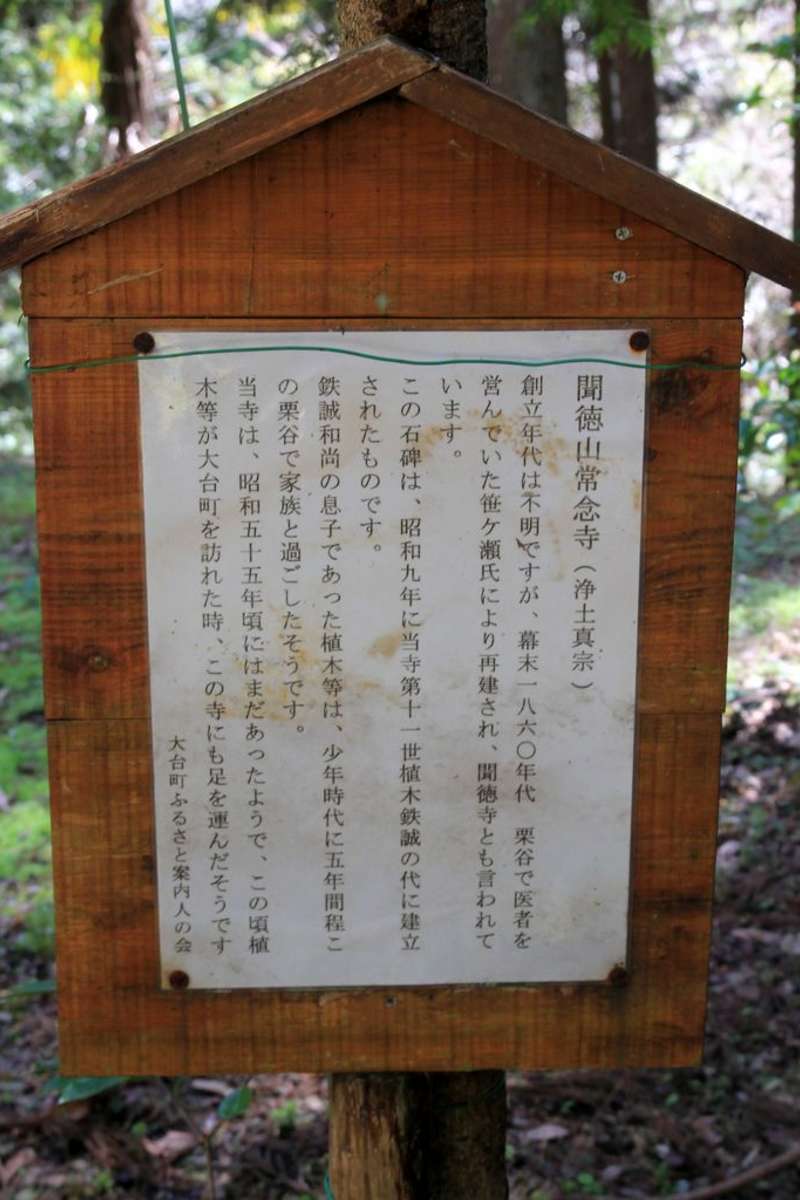 聞徳山常念寺（浄土真宗）
創立年代は不明ですが、幕末一八六〇年代　栗谷で医者を
営んでいた笹ケ瀬氏により再建され、聞徳寺とも言われて
います。
この石碑は、昭和九年に当寺第十一世植木鉄誠の代に建立
されたものです。
鉄誠和尚の息子であった植木等は、少年時代に五年間程こ
の栗谷で家族と過ごしたそうです。
当寺は、昭和五十五年頃にはまだあったようで、この頃植
木等が大台町を訪れた時、この寺にも足を運んだそうです
大台町ふるさと案内人の会